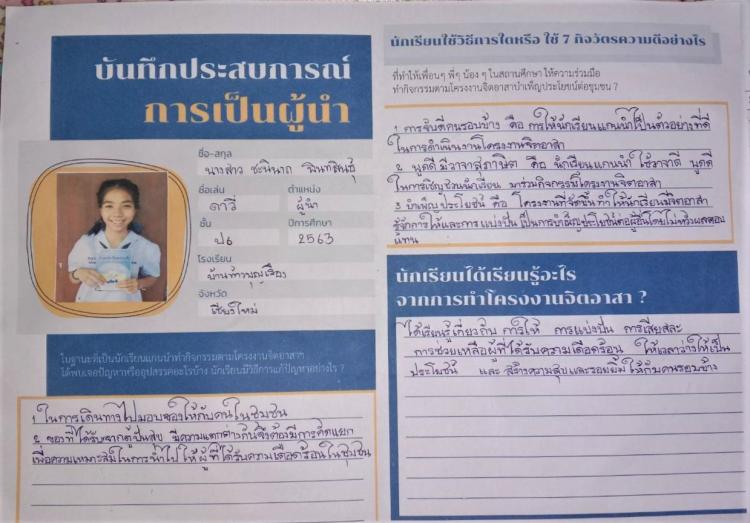 บันทึกประสบการณ์
การเป็นผู้นำ
ชื่อ-สกุล
นางสาว ชะนินาถ จินทรัตน์
ชื่อเล่น
ตำแหน่ง
ดาวี่
ผู้นำ
ชั้น
ปีการศึกษา
ป6
2563
โรงเรียน
บ้านท้าวบุญเรือง
จังหวัด
เชียงใหม่
ในฐานะที่เป็นนักเรียนแกนนำทำกิจกรรมตามโครงงานจิตอาสาฯ
ได้พบเจอปัญหาหรืออุปสรรคอะไรบ้าง นักเรียนมีวิธีการแก้ปัญหาอย่างไร ?
1. ในการเดินทางไปมอบของให้กับคนในชุมชน
2. ของที่ได้รับจากตู้ปันสุข มีความแตกต่างกันจึงต้องมีการคัดแยก
เพื่อความเหมาะสมในการนำไปให้ผู้ที่ได้รับความเดือดร้อนในชุมชน
นักเรียนใช้วิธีการใดหรือ ใช้ 7 กิจวัตรความดีอย่างไร
ที่ทำให้เพื่อนๆ พี่ๆ น้อง ๆ ในสถานศึกษา ให้ความร่วมมือ
ทำกิจกรรมตามโครงงานจิตอาสาบำเพ็ญประโยชน์ต่อชุมชน ?
1. การจับดีคนรอบข้าง คือ การให้นักเรียนแกนนำเป็นตัวอย่างที่ดี
ในการดำเนินงานโครงงานจิตอาสา
2. พูดดี มีวาจาสุภาษิต คือ นักเรียนแกนนำ ใช้วาจาดี พูดดี
ในการเชิญชวนนักเรียน มาร่วมกิจกรรมโครงงานจิตอาสา
3. บำเพ็ญประโยชน์ คือ โครงงานที่จัดขึ้นทำให้นักเรียนมีจิตอาสา
รู้จักการให้และการแบ่งปัน เป็นการบำเพ็ญประโยชน์ต่อผู้อื่นโดยไม่หวังผลตอบ
แทน
นักเรียนได้เรียนรู้อะไร
จากการทำโครงงานจิตอาสา ?
ได้เรียนรู้เกี่ยวกับ การให้ การแบ่งปัน การเสียสละ
การช่วยเหลือผู้ที่ได้รับความเดือดร้อน ใช้เวลาว่างให้เป็น
ประโยชน์ และ สร้างความสุขและรอยยิ้มให้กับคนรอบข้าง